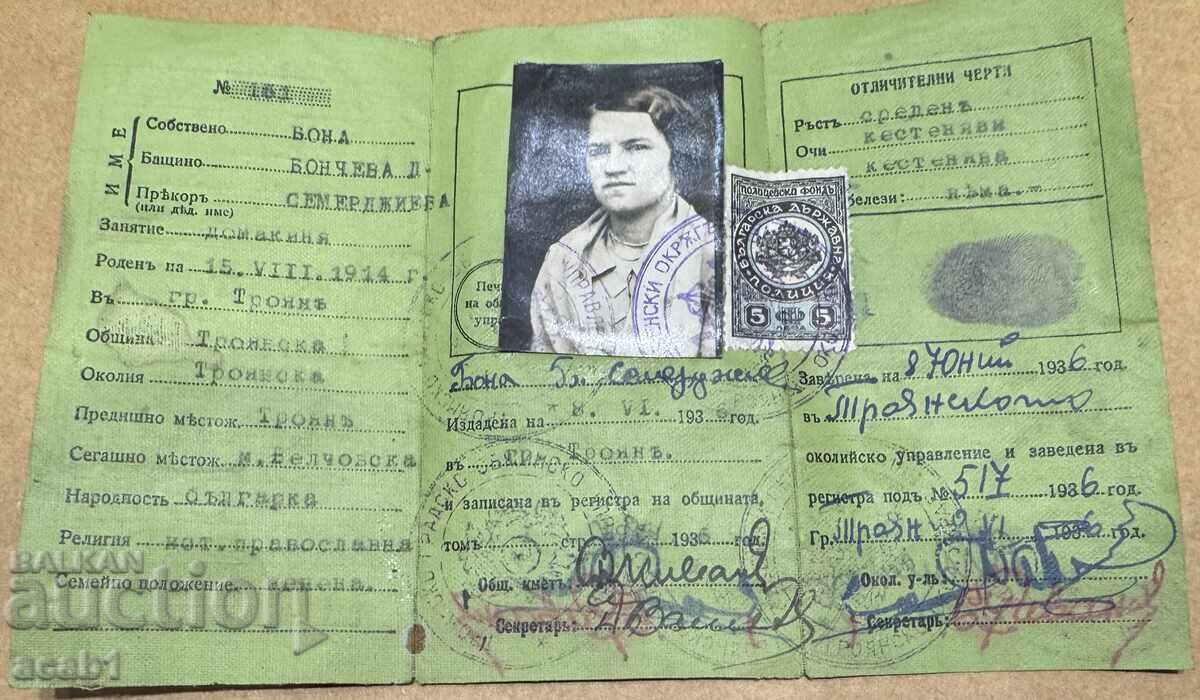 № 161
ИМЕ
Собствено БОНА
Бащино БОНЧЕВА Д.
Прѣкоръ СЕМЕРДЖИЕВА
(или дѣд. име)
Занятие домакиня
Роденъ на 15.VIII.1914 г.
Въ гр. Троянъ
Община Троянска
Околия Троянска
Предишно мѣстож. Троянъ
Сегашно мѣстож. м. Белчовска
Народность българка
Религия изт. православна
Семейно положение
Бона Бл.
Издадена на 8. VI. 1936 год.
въ гр. Троянъ.
и записана въ регистра на общината,
томъ стр. 1936 год.
Общ. кметъ:
Секретарь:
ПОЛИЦЕЙСКИ ФОНДЪ
БЪЛГАРСКА ДЪРЖАВНА
5 5
ОТЛИЧИТЕЛНИ ЧЕРТИ
Ръстъ среденъ
Очи кестеняви
кестенява
белези: нѣма.
Завѣрена на 8 Юний 1936 год.
въ Троянското
околийско управление и заведена въ
регистра подъ № 517 1936 год.
Гр. Троян 8 VI 1936 год.
Окол. у-лъ:
Секретарь:
BALKAN
auction
acab1